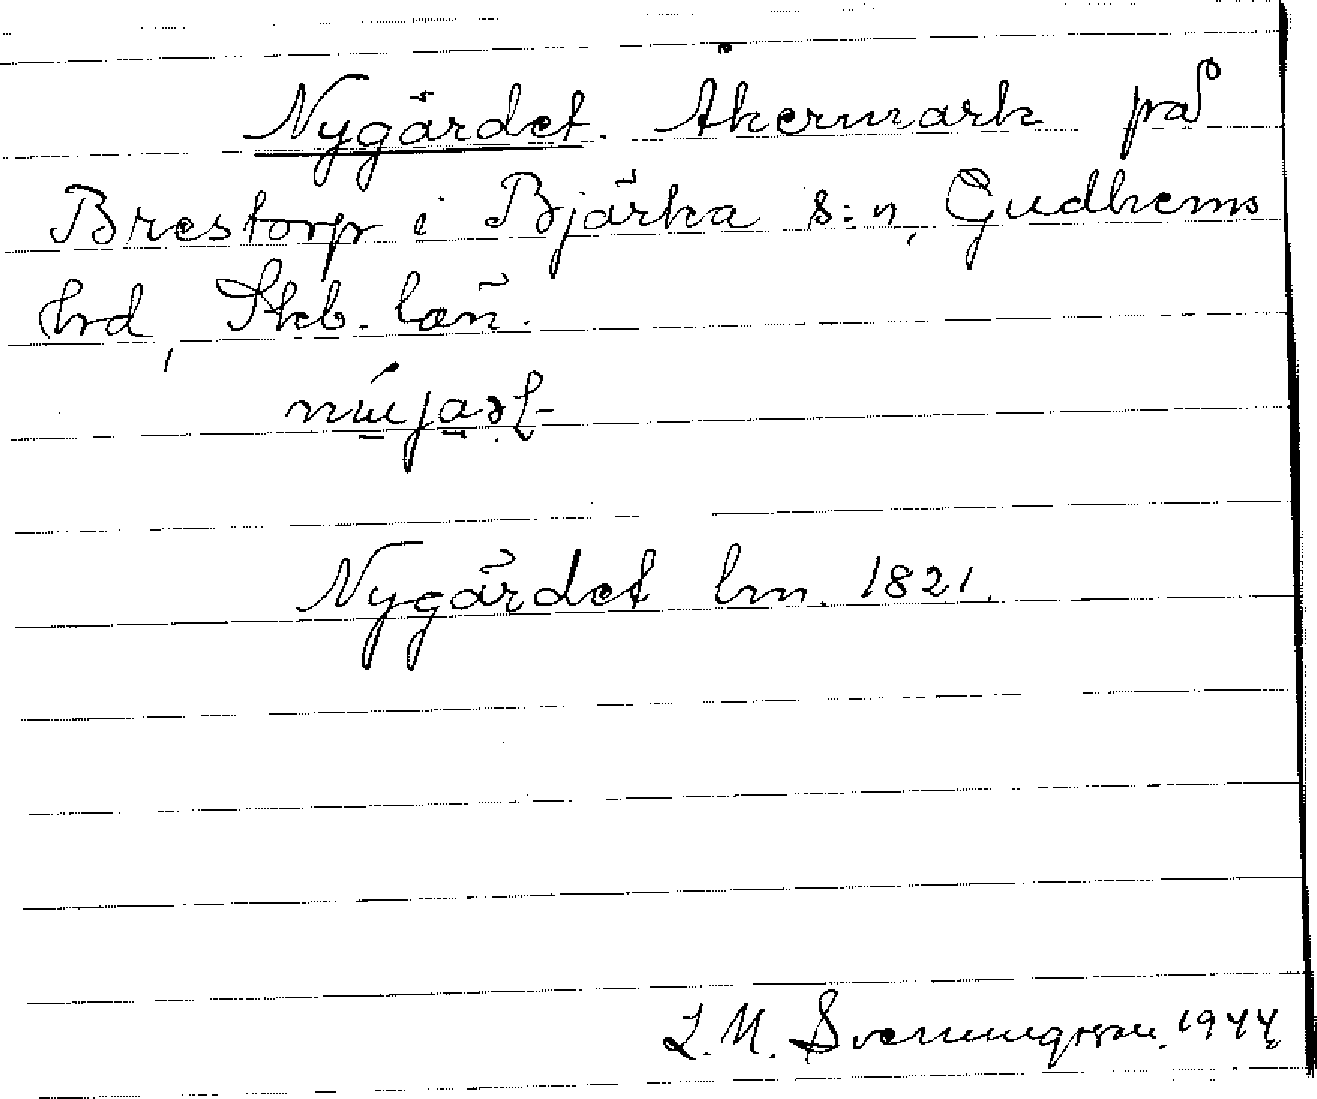 Nygärdet. Åkermark på
Brestorp i Bjärka s:n, Gudhems
hrd, Skb. län.
Nygärdet lm. 1821.
L. M. Svenungsson. 1944